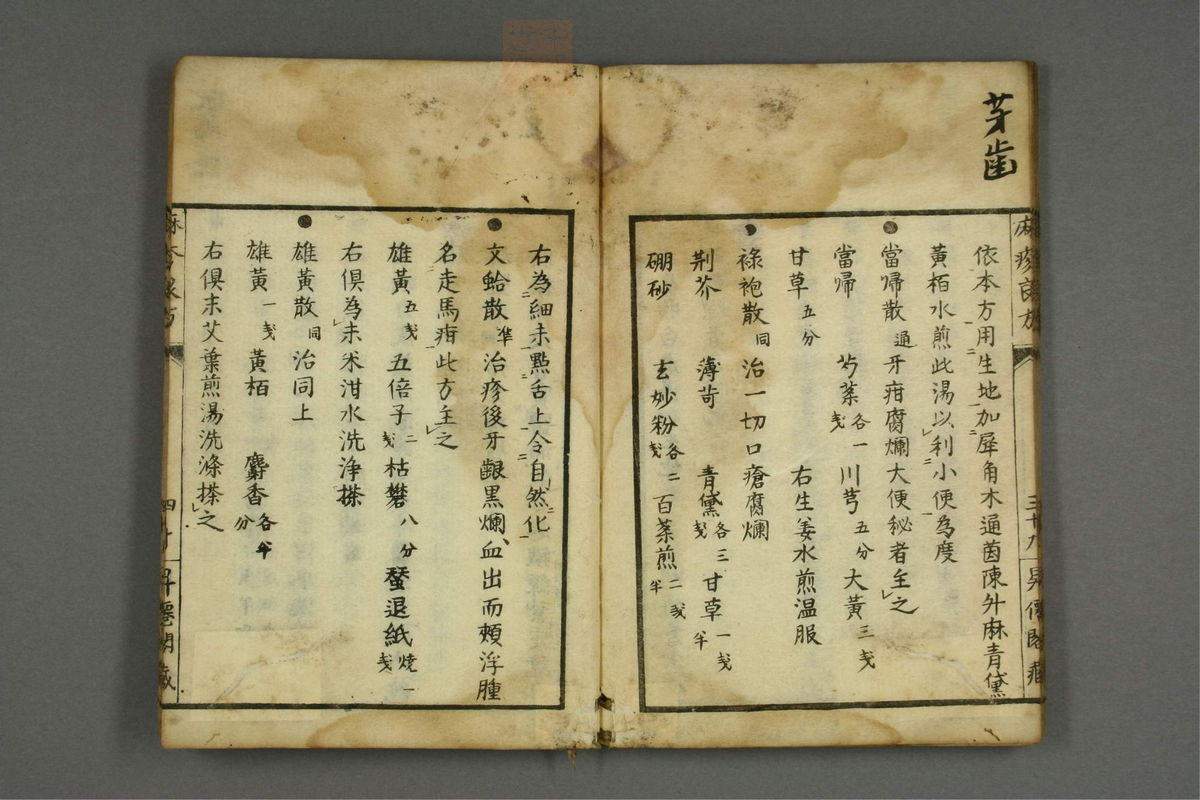 芽歯
麻疹良方
三十九
昇僊閣藏
依本方用生地加犀角木通茵陳升麻青黛
黄栢水煎此湯以利小便為度
●當帰散通牙疳腐爛大便秘者主之
當帰 芍薬各一戔 川芎五分 大黄三戔
甘草五分 右生姜水煎温服
●祿袍散同治一切口瘡腐爛
荆芥 薄苛 青黛各三戔 甘草一戔半
硼砂 玄妙粉各二戔 百薬煎二戔半
右為細末點舌上令自然化
●文蛤散準治疹後牙齦黒爛血出而頬浮腫
名走馬疳此方主之
雄黄五戔 五倍子二戔 枯礬八分 蚕退紙燒一戔
右俱為末米泔水洗浄搽
●雄黄散同治同上
雄黄一戔 黄栢 麝香各半分
右俱末艾葉煎湯洗滌搽之
四十
昇僊閣藏